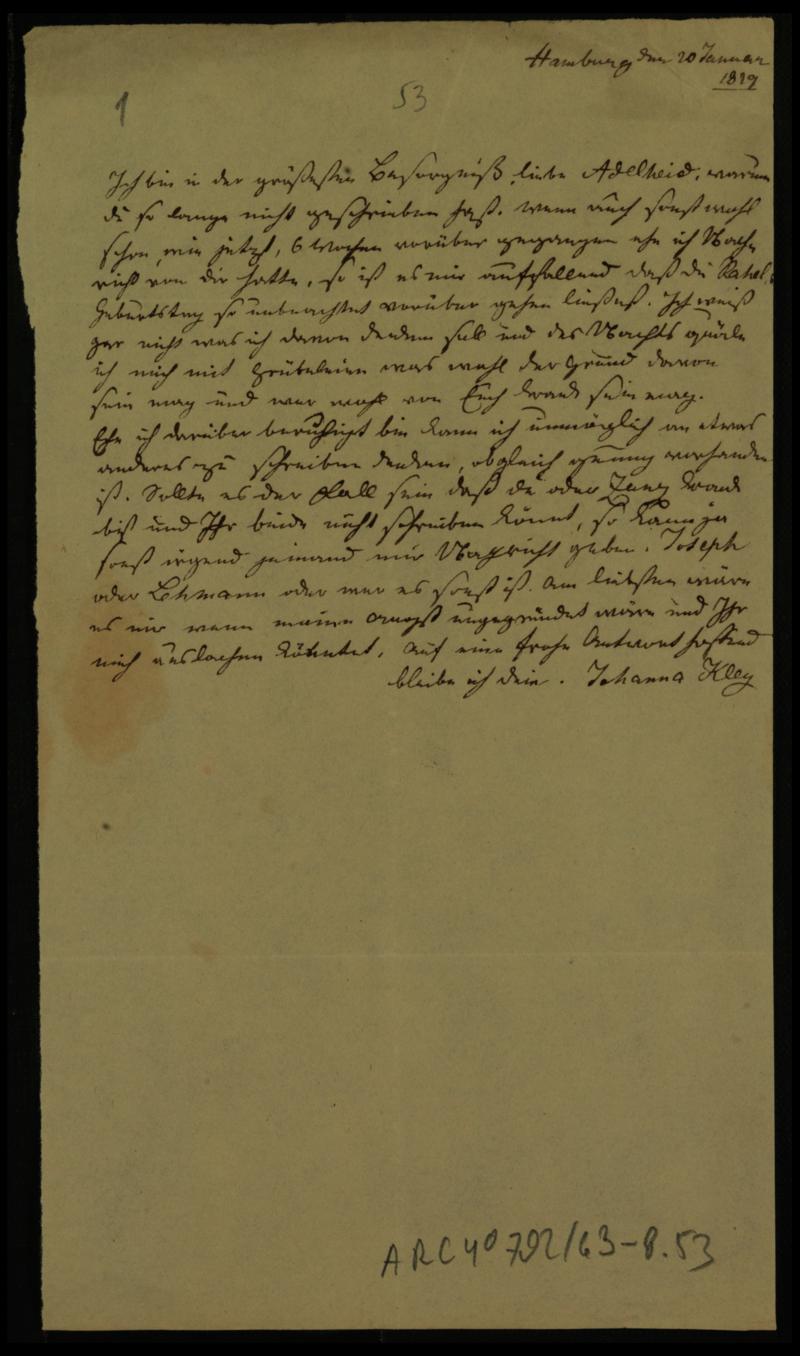 Hamburg den 20 Januar
1839
1
53
Ich bin in der größesten Besorgniß, liebe Adelheid, warum
du so lange nicht geschrieben hast. wenn auch sonst wohl
schon, wie jetzt, 6 Wochen vorüber gegangen ehe ich Nach-
richt von dir hatte, so ist es mir auffallend daß du Rahels
Geburtstag so unbeachtet vorüber gehen ließest. Ich weiß
gar nicht was ich davon denken soll und des Nachts quäle
ich mich mit Grübeleien was wohl der Grund davon
sein mag und wer wohl von Euch krank sein mag.
Ehe ich darüber beruhigt bin kann ich unmöglich an etwas
anderes zu schreiben denken, obgleich genung vorhanden
ist. Sollte es der Fall sein daß du oder Zunz krank
bist und Ihr beide nicht schreiben könnt, so kann ja
sonst irgend jemand mir Nachricht geben. Joseph
oder Lehmann oder wer es sonst ist. Am liebsten wäre
es mir wenn meine Angst ungegründet wäre und Ihr
mich auslachen könntet. Auf eine frohe Antwort hoffend
bleibe ich dein. Johanna Kley
ARC 40 792/63-8.53